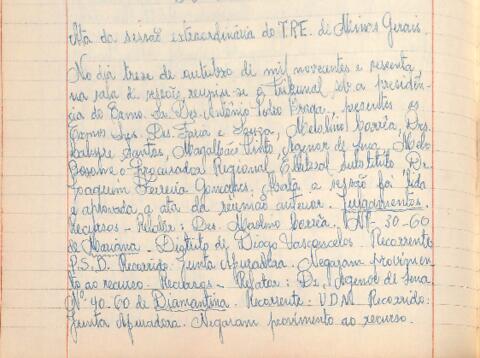 Ata da sessão extraordinária do T.R.E. de Minas Gerais.
No dia treze de outubro de mil novecentos e sessenta,
na sala de sessões reuniu-se o Tribunal sob a presidên-
cia do Exmo. Sr. Des. Antônio Pedro Braga, presentes os
Exmos Srs. Des. Faria e Souza, Merolino Corrêa, Drs.
Dalspre Santos, Magalhães Pinto, Agenor de Sena, Melo
e o Procurador Regional Eleitoral Substituto Dr.
Joaquim Ferreira Gonçalves. Aberta a sessão foi lida
e aprovada a ata da reunião anterior. Julgamentos.
Recursos - Relator: Des. Merolino Corrêa. Nº 30-60
de Mariana. Distrito de Diogo Vasconcelos. Recorrente:
P.S.D. Recorrido: Junta Apuradora. Negaram provimen-
to ao recurso. Recursos - Relator: Dr. Agenor de Sena
Nº 40-60 de Diamantina. Recorrente: U.D.N. Recorrido:
Junta Apuradora. Negaram provimento ao recurso.